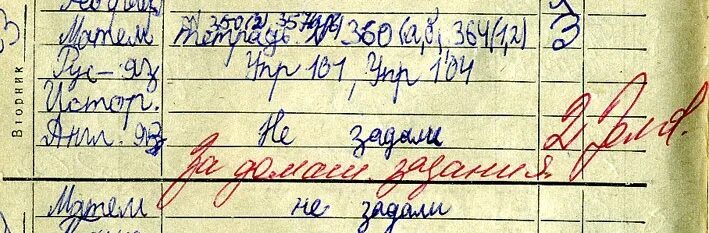 Матем тетрадь № 350(2), 357(а,б) 360(а,б, 364(1,2)
Рус-яз Упр 101, Упр 104
Истор.
Англ. яз Не задали
2
За домаш. задания
Матем не задали
Вторник